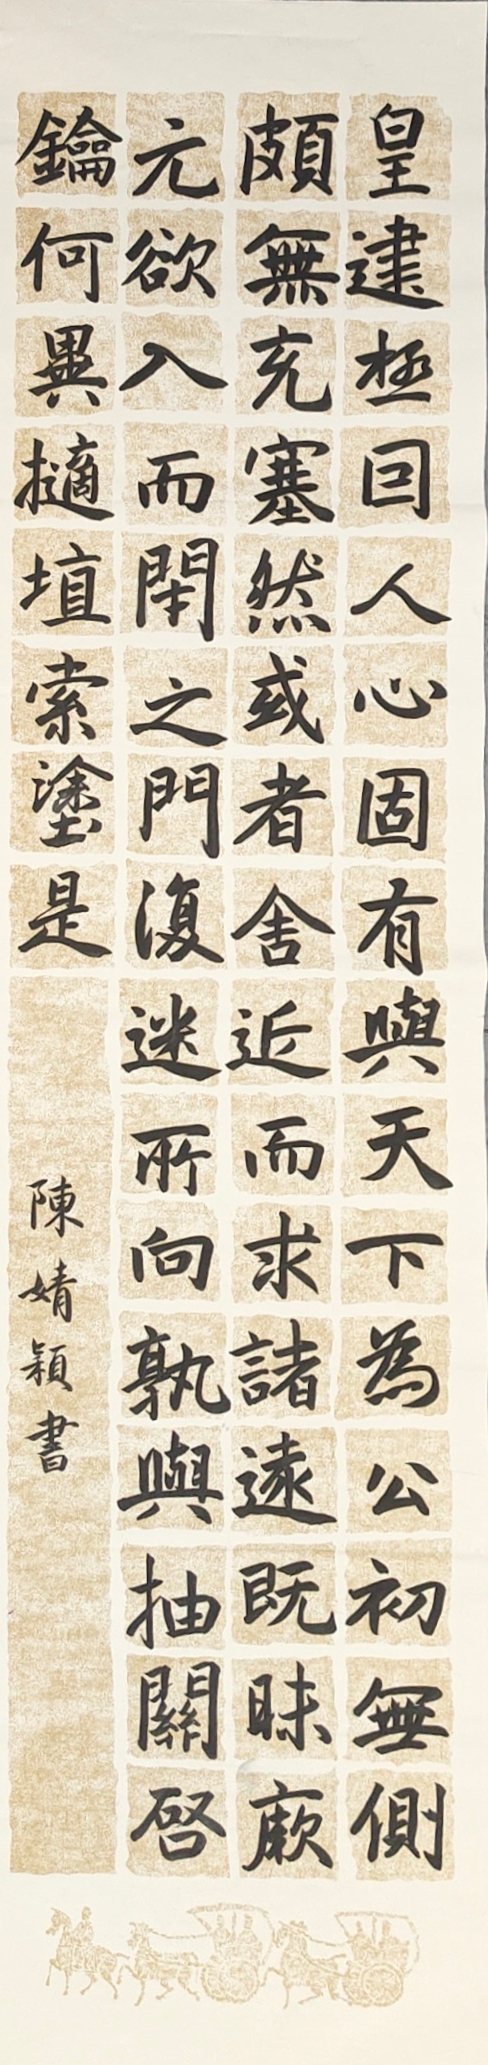 皇建極回人心固有與天下為公初無側
頗無充塞然或者舍近而求諸遠既昧厥
元欲入而閉之門復迷所向孰與抽關啓
鑰何異擿埴索塗是
陳婧穎書